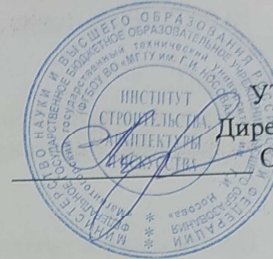 МИНИСТЕРСТВО НАУКИ И ВЫСШЕГО ОБРАЗОВАНИЯ
ФЕДЕРАЦИИ
ФЕДЕРАЛЬНОЕ ГОСУДАРСТВЕННОЕ БЮДЖЕТНОЕ ОБРАЗОВАТЕЛЬНОЕ
ОБРАЗОВАНИЯ
государственный технический
(ФГБОУ ВО «МГТУ им. Г.И. НОСОВА»)
Носова»
ИНСТИТУТ
СТРОИТЕЛЬСТВА,
АРХИТЕКТУРЫ
И ИСКУССТВА
* * *
УТ
Дире
С